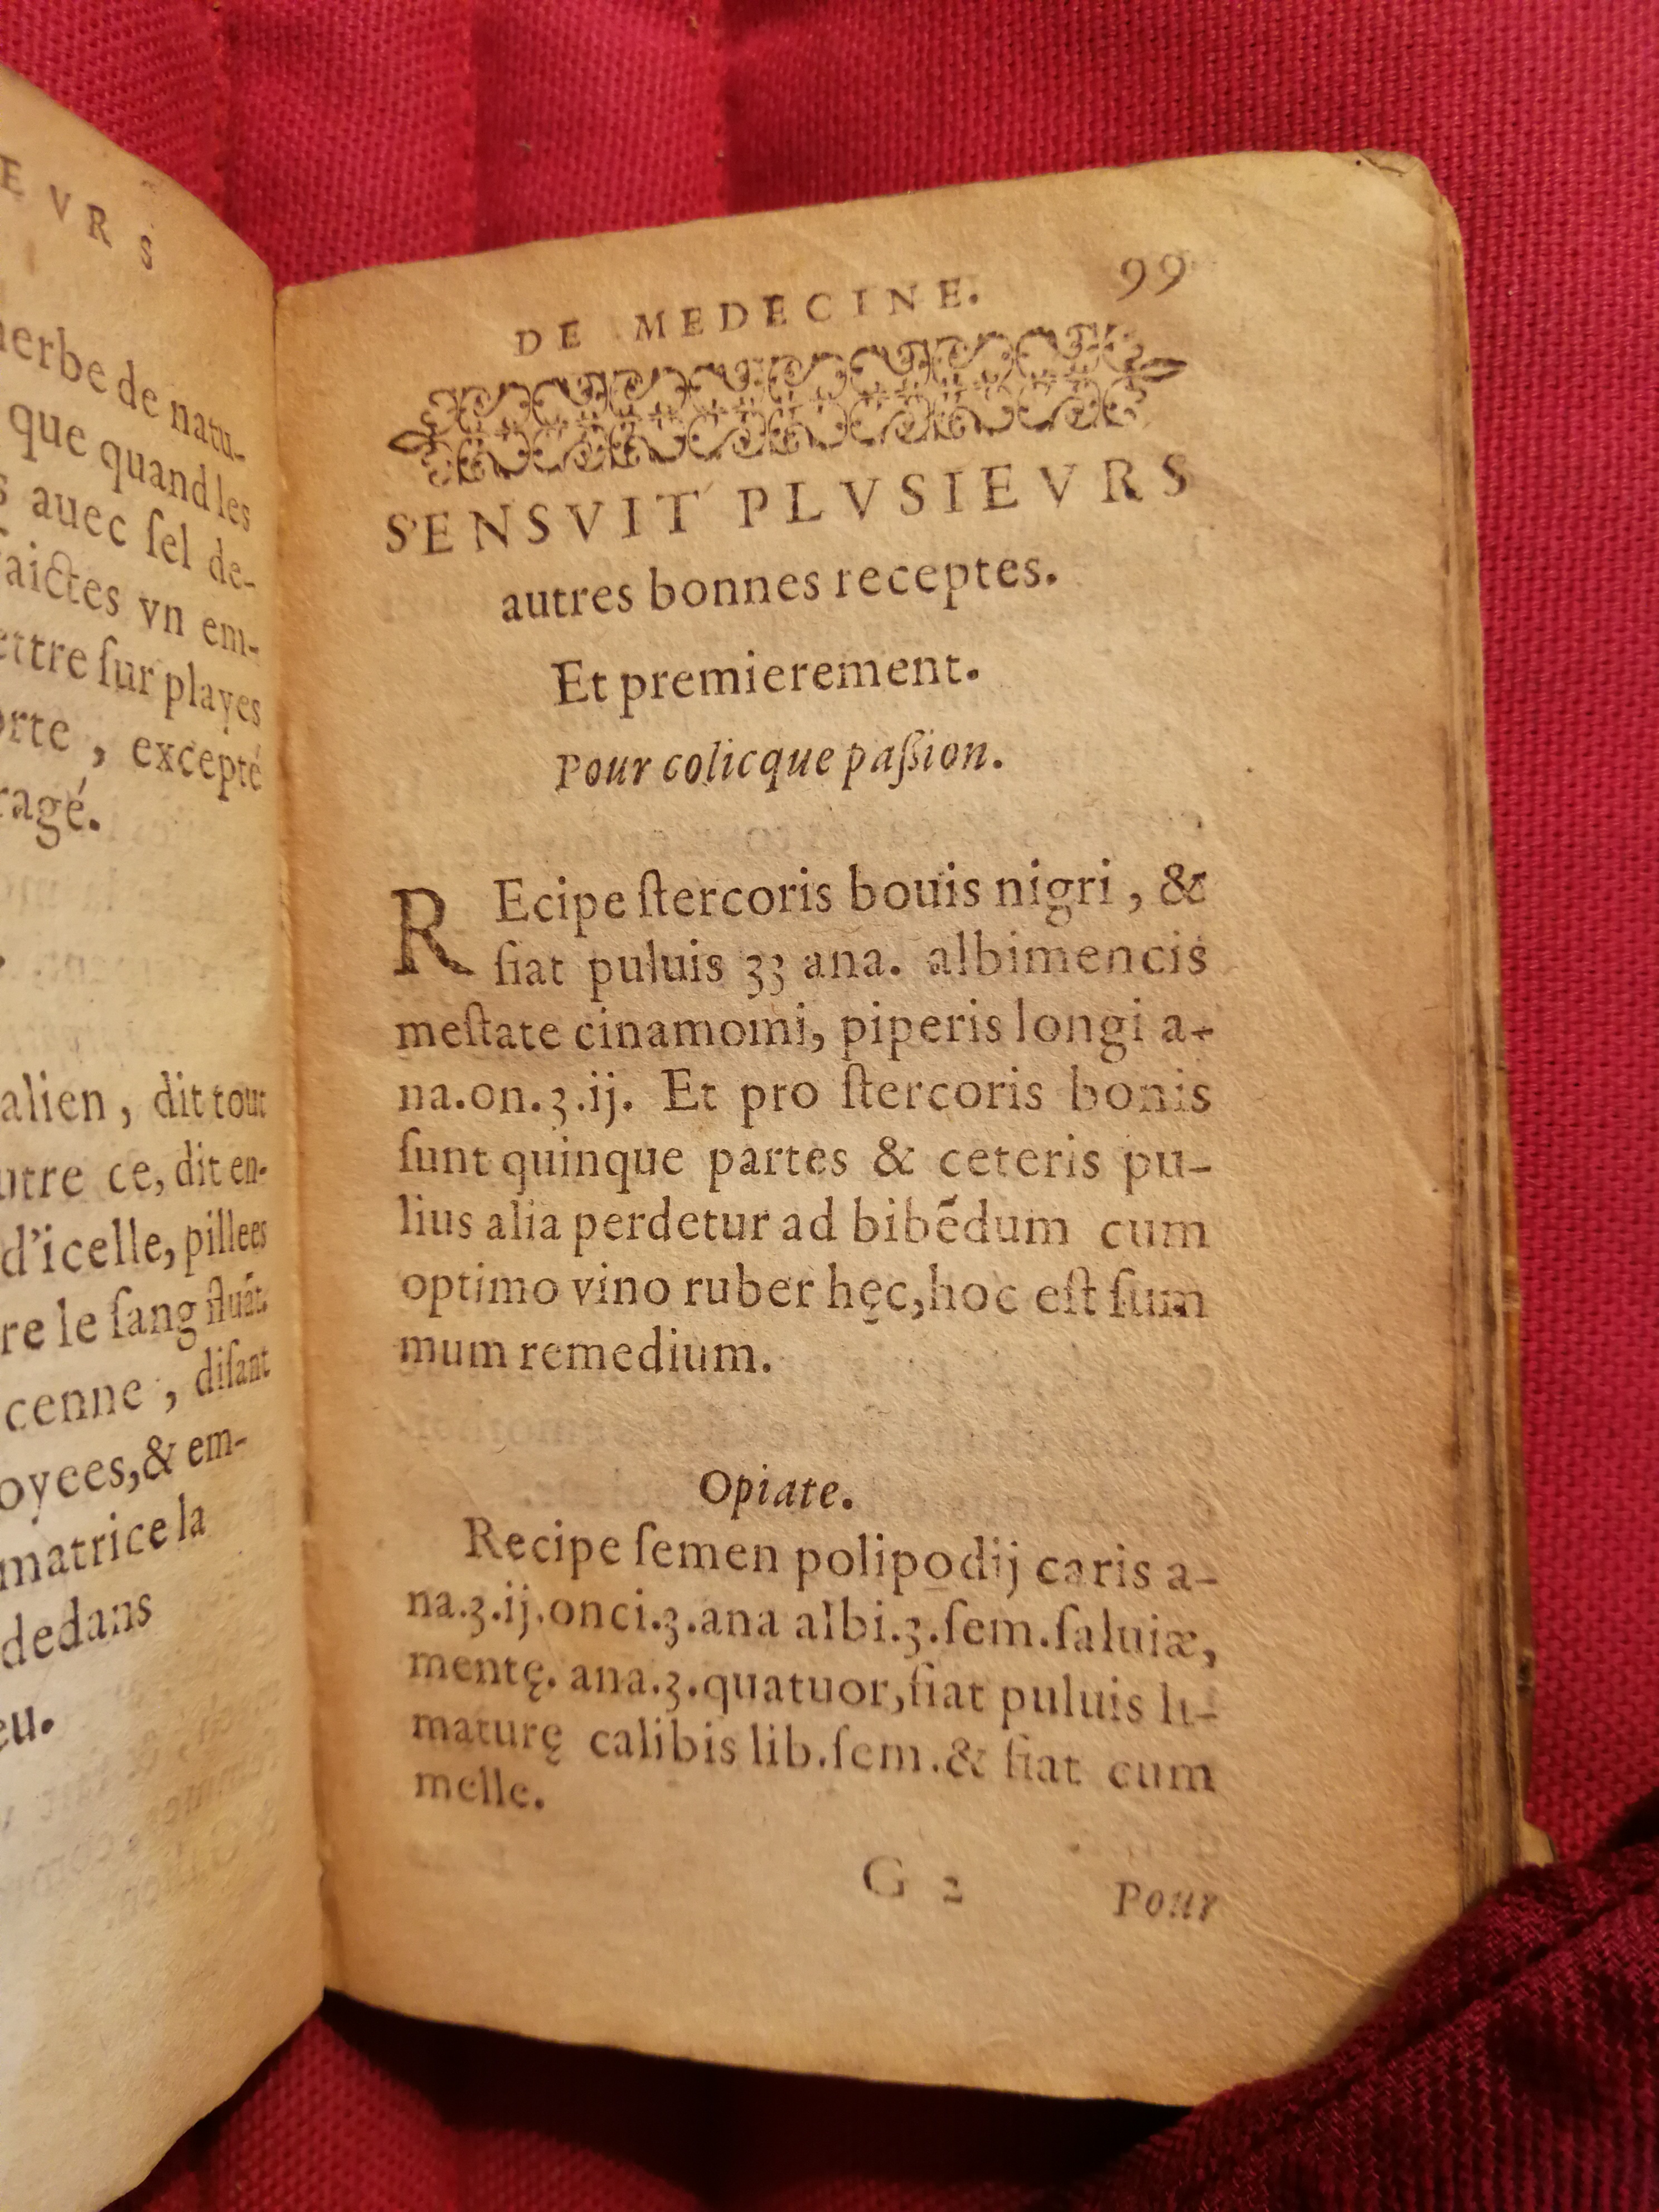 EVRS
herbe de natu-
que quand les
s auec ſel de-
faictes vn em-
ettre ſur playes
orte , excepté
ragé.
alien , dit tout
utre ce, dit en-
d'icelle, pillees
re le ſang fluãt.
cenne , diſant
oyees,& em-
matrice la
dedans
eu.
DE MEDECINE. 99
S'ENSVIT PLVSIEVRS
autres bonnes receptes.
Et premierement.
Pour colicque paſsion.
REcipe ſtercoris bouis nigri , &
fiat puluis ʒʒ ana. albimencis
meſtate cinamomi, piperis longi a-
na.on.ʒ.ij. Et pro ſtercoris bonis
ſunt quinque partes & ceteris pu-
lius alia perdetur ad bibẽdum cum
optimo vino ruber hęc,hoc eſt ſum
mum remedium.
Opiate.
Recipe ſemen polipodij caris a-
na.ʒ.ij.onci.ʒ.ana albi.ʒ.ſem.ſaluiæ,
mentę. ana.ʒ.quatuor,fiat puluis li-
maturę calibis lib.ſem.& fiat cum
melle.
G 2 Pour